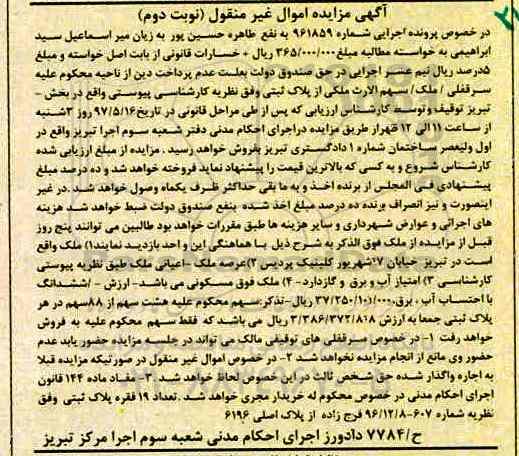 آگهی مزایده اموال غیر منقول (نوبت دوم)
در خصوص پرونده اجرایی شماره ۹۶۱۸۵۹ به نفع طاهره حسین پور به زیان میر اسماعیل سید
ابراهیمی به خواسته مطالبه مبلغ ۳۶۵/۰۰۰/۰۰۰ ریال + خسارات قانونی از بابت اصل خواسته و مبلغ
۵درصد ریال نیم عسر اجرایی در حق صندوق دولت بعلت عدم پرداخت دین از ناحیه محکوم علیه
سرقفلی / ملک / سهم الارث ملکی از پلاک ثبتی وفق نظریه کارشناسی پیوستی واقع در بخش -
تبریز توقیف وتوسط کارشناس ارزیابی که پس از طی مراحل قانونی در تاریخ۹۷/۵/۱۶ روز ۳شنبه
از ساعت ۱۱الی ۱۲ ظهراز طریق مزایده دراجرای احکام مدنی دفتر شعبه سوم اجرا تبریز واقع در
اول ولیعصر ساختمان شماره ۱ دادگستری تبریز بفروش خواهد رسید . مزایده از مبلغ ارزیابی شده
کارشناس شروع و به کسی که بالاترین قیمت را پیشنهاد نماید فروخته خواهد شد و ده درصد مبلغ
پیشنهادی فی المجلس از برنده اخذ و به ما بقی حداکثر ظرف یکماه وصول خواهد شد .در غیر
اینصورت و نیز انصراف برنده ده درصد مبلغ اخذ شده بنفع صندوق دولت ضبط خواهد شد هزینه
های اجرائی و عوارض شهرداری و سایر هزینه ها طبق مقررات خواهد بود طالبین می توانند پنج روز
قبل از مزایده از ملک فوق الذکر به شرح ذیل با هماهنگی این و احد بازدید نمایند۱) ملک واقع
است در تبریز خیابان ۱۷شهریور کلینیک پردیس ۲)عرصه ملک -اعیانی ملک طبق نظریه پیوستی
کارشناسی ۳) امتیاز آب و برق و گازدارد- ۴) ملک فوق مسکونی می باشد- ارزش -/ششدانگ
با احتساب آب ، برق،۳۷/۲۵۰/۱۰۱/۰۰۰ ریال-تذکر:سهم محکوم علیه هشت سهم از ۸۸سهم در هر
پلاک ثبتی جمعا به ارزش ۳/۳۸۶/۳۷۲/۸۱۸ ریال می باشد که فقط سهم محکوم علیه به فروش
خواهد رفت ۱- در خصوص سرقفلی های توقیفی مالک می تواند در جلسه مزایده حضور یابد عدم
حضور وی مانع از انجام مزایده نخواهد شد ۲- در خصوص اموال غیر منقول در صورتیکه مزایده قبلا
به اجاره واگذار شده حق شخص ثالث در این خصوص لحاظ خواهد شد .۳- مفاد ماده ۱۴۴ قانون
اجرای احکام مدنی در خصوص محکوم له خریدار مجری خواهد شد .تعداد ۱۹ فقره پلاک ثبتی وفق
نظریه شماره ۶۰۷-۹۶/۱۲/۸ فرج زاده از پلاک اصلی ۶۱۹۶
ح/۷۷۸۴ دادورز اجرای احکام مدنی شعبه سوم اجرا مرکز تبریز